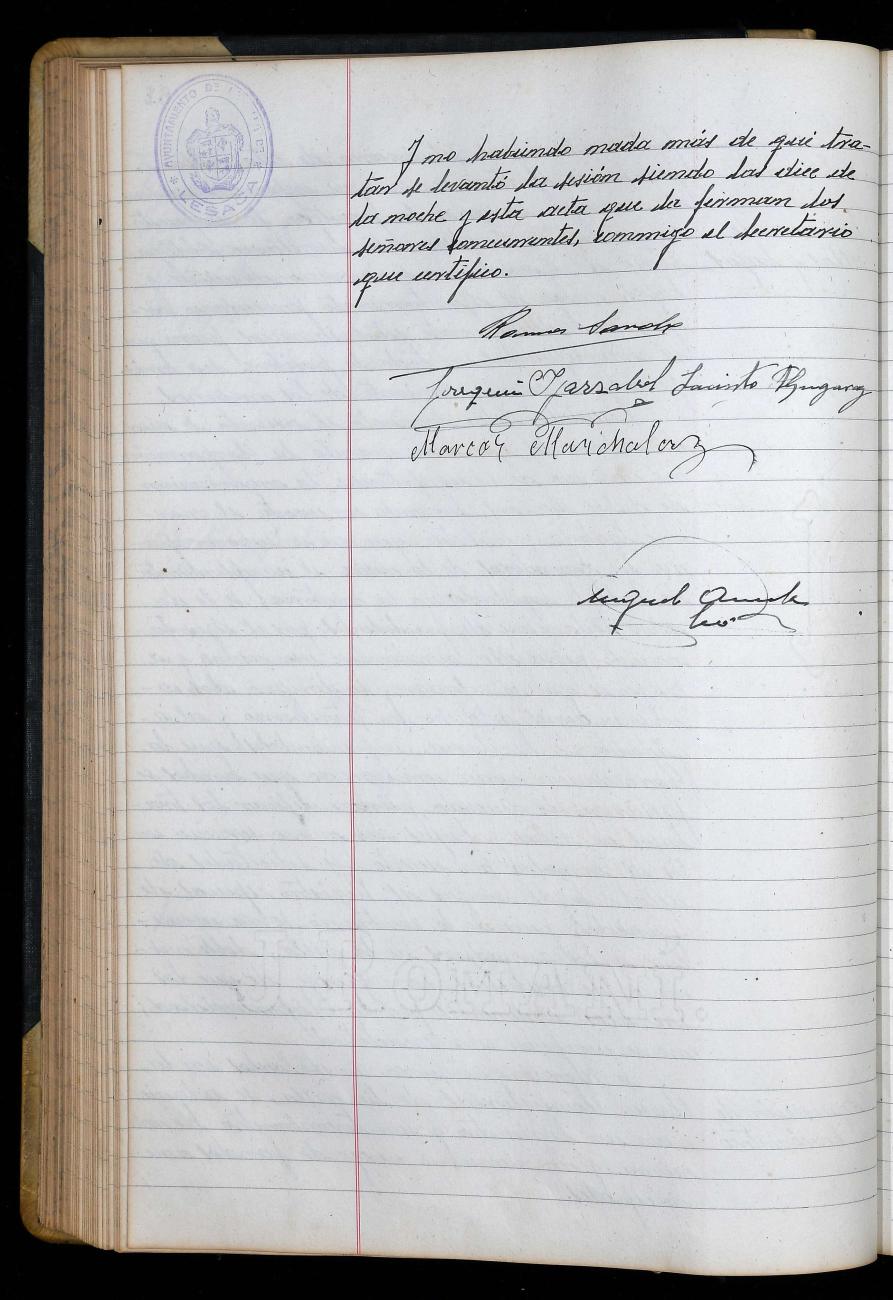 AYUNTAMIENTO DE
LESACA
Y no habiendo nada más de qué tra-
tar se levantó la sesión siendo las diez de
la noche y esta acta que la firman los
señores concurrentes, conmigo el secretario
que certifico.
Ramon
Joaquin Jacinto
Marcos Marichalar
Miguel